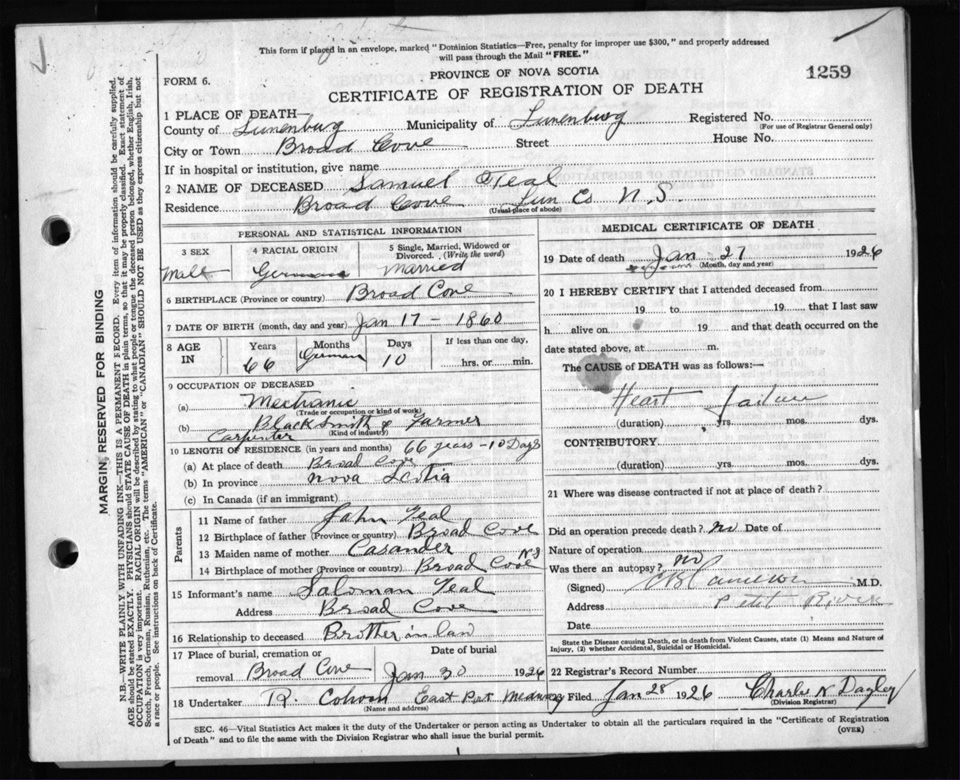 This form if placed in an envelope, marked "Dominion Statistics—Free, penalty for improper use $300," and properly addressed
will pass through the Mail "FREE."
PROVINCE OF NOVA SCOTIA
1259
FORM 6.
CERTIFICATE OF REGISTRATION OF DEATH
1 PLACE OF DEATH—
County of Lunenburg Municipality of Lunenburg Registered No.
(For use of Registrar General only)
City or Town Broad Cove Street House No.
If in hospital or institution, give name
2 NAME OF DECEASED Samuel Teal
Residence Broad Cove Lun Co N.S.
(Usual place of abode)
PERSONAL AND STATISTICAL INFORMATION
3 SEX 4 RACIAL ORIGIN 5 Single, Married, Widowed or
Divorced. (Write the word)
Male German Married
6 BIRTHPLACE (Province or country) Broad Cove
7 DATE OF BIRTH (month, day and year) Jan 17 - 1860
8 AGE IN Years Months Days If less than one day,
66 German 10 hrs. or min.
9 OCCUPATION OF DECEASED
(a) Mechanic
(Trade or occupation or kind of work)
(b) Blacksmith & Farmer
Carpenter (Kind of industry)
10 LENGTH OF RESIDENCE (in years and months) 66 years - 10 Days
(a) At place of death Broad Cove
(b) In province Nova Scotia
(c) In Canada (if an immigrant)
Parents
11 Name of father John Teal
12 Birthplace of father (Province or country) Broad Cove
13 Maiden name of mother Casander
14 Birthplace of mother (Province or country) Broad Cove N S
15 Informant's name Saloman Teal
Address Broad Cove
16 Relationship to deceased Brother in law
17 Place of burial, cremation or Date of burial
removal Broad Cove Jan 30 1926
18 Undertaker R. East Port Medway
(Name and address)
MEDICAL CERTIFICATE OF DEATH
19 Date of death Jan 27 1926
(Month, day and year)
20 I HEREBY CERTIFY that I attended deceased from
19 to 19 that I last saw
h alive on 19 and that death occurred on the
date stated above, at m.
The CAUSE of DEATH was as follows:—
Heart Failure
(duration) yrs. mos. dys.
CONTRIBUTORY.
(duration) yrs. mos. dys.
21 Where was disease contracted if not at place of death?
Did an operation precede death? no Date of
Nature of operation
Was there an autopsy? no
(Signed) Cameron M.D.
Address Petit River
Date
State the Disease causing Death, or in death from Violent Causes, state (1) Means and Nature of
Injury, (2) whether Accidental, Suicidal or Homicidal.
22 Registrar's Record Number
Filed Jan 28 1926 Charlie N Dagley
(Division Registrar)
SEC. 46—Vital Statistics Act makes it the duty of the Undertaker or person acting as Undertaker to obtain all the particulars required in the "Certificate of Registration
of Death" and to file the same with the Division Registrar who shall issue the burial permit.
(OVER)
MARGIN RESERVED FOR BINDING
N.B.—WRITE PLAINLY WITH UNFADING INK—THIS IS A PERMANENT RECORD. Every item of information should be carefully supplied.
AGE should be stated EXACTLY. PHYSICIANS should STATE CAUSE OF DEATH in plain terms, so that it may be properly classified. Exact statement of
OCCUPATION is very important. RACIAL ORIGIN will be described by stating to what people or tongue the deceased person belonged, whether English, Irish,
Scotch, French, German, Russian, Ruthenian, etc. The terms "AMERICAN" or "CANADIAN" SHOULD NOT BE USED as they express citizenship but not
a race or people. See instructions on back of Certificate.